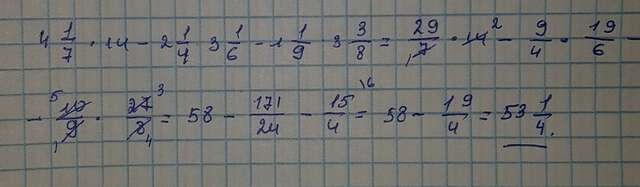 4 1/7 · 14 - 2 1/4 · 3 1/6 - 1 1/9 · 3 3/8 = 29/7 · 14 2 - 9/4 · 19/6 -
- 5 10/9 1 · 27 3/8 4 = 58 - 171/24 - 15/4 \6 = 58 - 19/4 = 53 1/4.